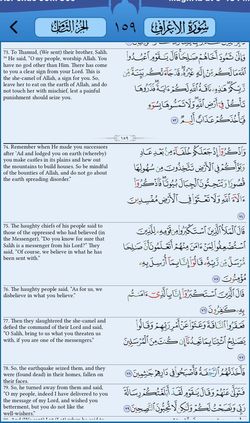 الجزء الثامن
١٥٩
سورة الأعراف
73. To Thamud, (We sent) their brother, Salih.
He said, "O my people, worship Allah. You
have no god other than Him. There has come
to you a clear sign from your Lord. This is
the she-camel of Allah, a sign for you. So,
leave her to eat on the earth of Allah, and do
not touch her with mischief, lest a painful
punishment should seize you.
وإلى ثمود أخاهم صالحا قال يقوم اعبدوا
الله ما لكم من إله غيره قد جاءتكم بينة من
ربكم هذه ناقة الله لكم ءاية فذروها
تأكل في أرض الله ولا تمسوها بسوء
فيأخذكم عذاب أليم ٧٣
١٥٩
74. Remember when He made you successors
after 'Ad and lodged you on earth (whereby)
you make castles in its plains and hew out
the mountains to build houses. So be mindful
of the bounties of Allah, and do not go about
the earth spreading disorder."
واذكروا إذ جعلكم خلفاء من بعد عاد
وبوأكم في الأرض تتخذون من سهولها
قصورا وتنحتون الجبال بيوتا فاذكروا
ءالاء الله ولا تعثوا في الأرض مفسدين
٧٤
75. The haughty chiefs of his people said to
those of the oppressed who had believed (in
the Messenger), "Do you know for sure that
Salih is a messenger from his Lord?" They
said, "Of course, we believe in what he has
been sent with."
قال الملأ الذين استكبروا من قومه للذين
استضعفوا لمن ءامن منهم أتعلمون أن صالحا
مرسل من ربه قالوا إنا بما أرسل به
مؤمنون ٧٥
76. The haughty people said, "As for us, we
disbelieve in what you believe."
قال الذين استكبروا إنا بالذي ءامنتم
به كفرون ٧٦
77. Then they slaughtered the she-camel and
defied the command of their Lord and said,
"O Salih, bring to us what you threaten us
with, if you are one of the messengers."
فعقروا الناقة وعتوا عن أمر ربهم وقالوا
يصلح ائتنا بما تعدنا إن كنت من المرسلين
٧٧
78. So, the earthquake seized them, and they
were (found dead) in their homes, fallen on
their faces.
فأخذتهم الرجفة فأصبحوا في دارهم جثمين ٧٨
79. So, he turned away from them and said,
"O my people, indeed I have delivered to you
the message of my Lord, and wished you
betterment, but you do not like the
well-wishers."
فتولى عنهم وقال يقوم لقد أبلغتكم رسالة
ربي ونصحت لكم ولكن لا تحبون النصحين ٧٩